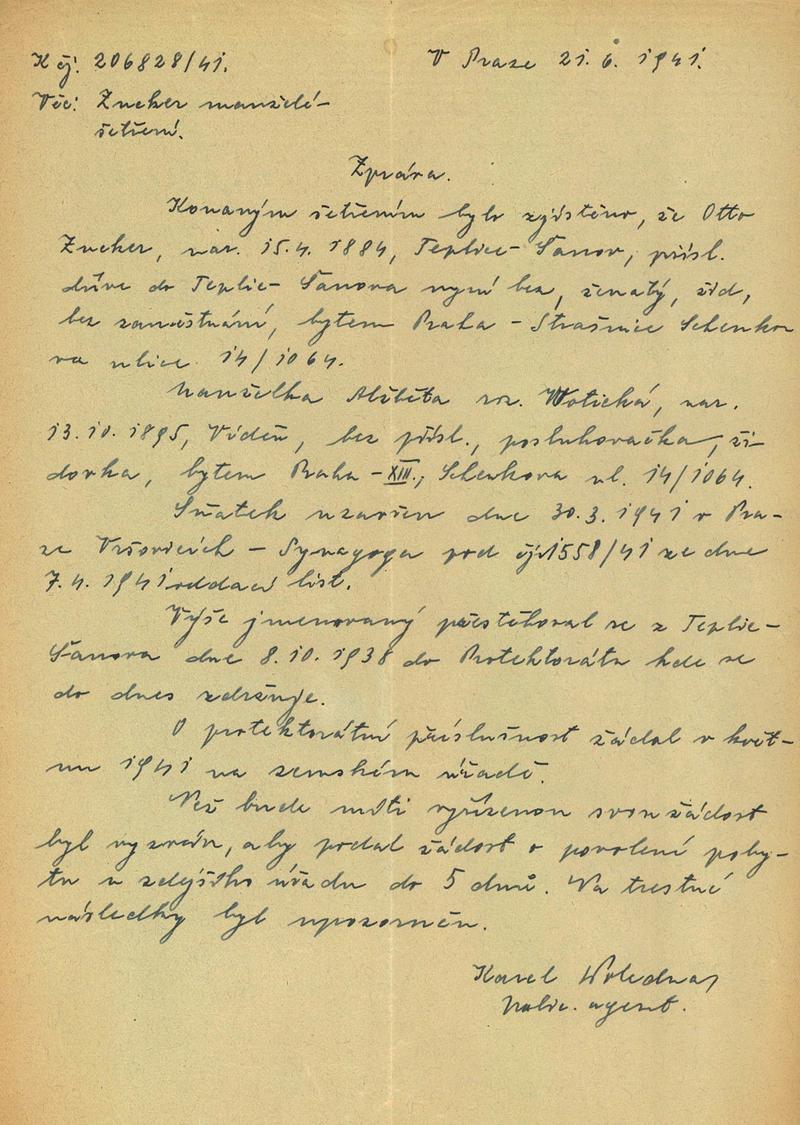 K čj: 206828/41.
V Praze 21. 6. 1941.
Věc: Zucker manželé-
šetření.
Zpráva.
Konaným šetřením bylo zjištěno, že Otto
Zucker, nar. 15.4. 1884, Teplice-Šanov, přísl.
dříve do Teplic-Šanova nyní bez, ženatý, žid,
bez zaměstnání, bytem Praha - Strašnice Schenko
va ulice 14/1064.
Manželka Alžběta roz. Wotická, nar.
13. 10. 1895, Vídeň, bez přísl., posluhovačka, ži-
dovka, bytem Praha - XIII., Schenkova ul. 14/1064.
Sňatek uzavřen dne 30.3. 1941 v Pra-
ze Vršovicích - Synagoga pod čj. 1558/41 ze dne
7.4. 1941 oddací list.
Výše jmenovaný přestěhoval se z Teplic-
Šanova dne 8.10. 1938 do Protektorátu kde se
do dnes zdržuje.
O protektorátní příslušnost žádal v květ-
nu 1941 na zemském úřadě.
Než bude míti vyřízenou svou žádost
byl vyzván, aby podal žádost o povolení poby-
tu u zdejšího úřadu do 5 dnů. Na trestné
následky byl upozorněn.
Karel
agent.